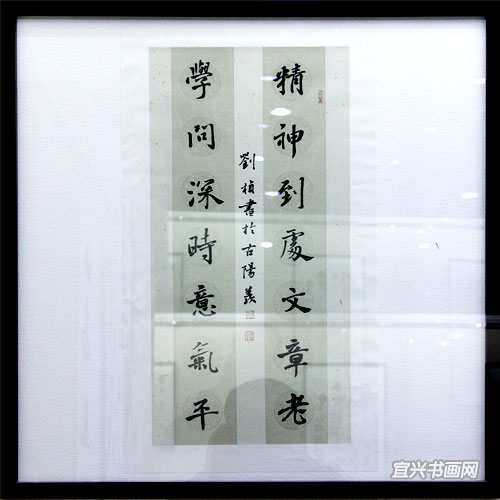 精神到處文章老
學問深時意氣平
劉楨書於古陽羨
宜兴书画网